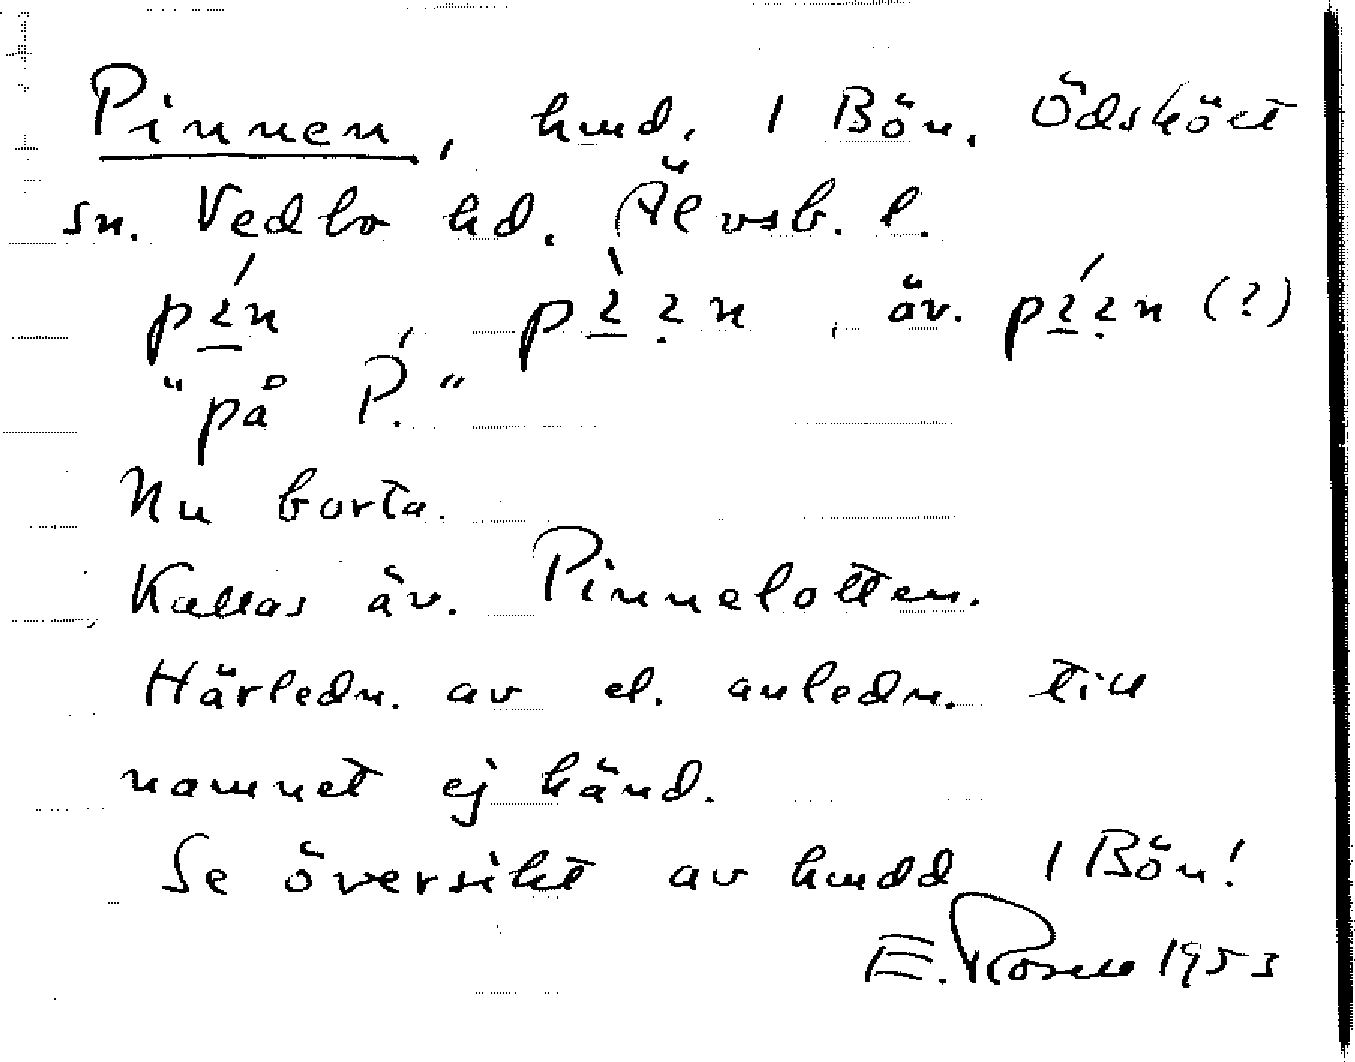 Pinnen, hmd. 1 Bön, Ödsköet
sn. Vedbo hd. Älvsb. l.
"på P."
Nu borta.
Kallas äv. Pinnelotten.
Härledn. av el. anledn. till
namnet ej känd.
Se översikt av hmdd 1 Bön!
E. Rosell 1953